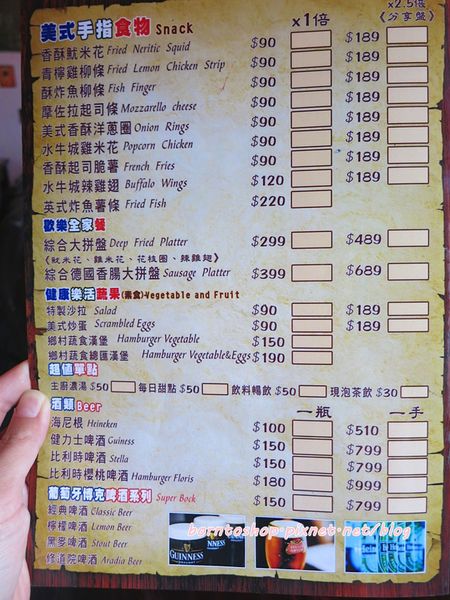 美式手指食物 Snack x1倍 x2.5倍
《分享盤》
香酥魷米花 Fried Neritic Squid $90 $189
青檸雞柳條 Fried Lemon Chicken Strip $90 $189
酥炸魚柳條 Fish Finger $90 $189
摩佐拉起司條 Mozzarello cheese $90 $189
美式香酥洋蔥圈 Onion Rings $90 $189
水牛城雞米花 Popcorn Chicken $90 $189
香酥起司脆薯 French Fries $90 $189
水牛城辣雞翅 Buffalo Wings $120 $189
英式炸魚薯條 Fried Fish $220
歡樂全家餐
綜合大拼盤 Deep Fried Platter $299 $489
《魷米花、雞米花、花枝圈、辣雞翅》
綜合德國香腸大拼盤 Sausage Platter $399 $689
健康樂活蔬果(素食) Vegetable and Fruit
特製沙拉 Salad $90 $189
美式炒蛋 Scrambled Eggs $90 $189
鄉村蔬食漢堡 Hamburger Vegetable $150
鄉村蔬食總匯漢堡 Hamburger Vegetable&Eggs $190
超值單點
主廚濃湯 $50 每日甜點 $50 飲料暢飲 $50 現泡茶飲 $30
酒類 Beer 一瓶 一手
海尼根 Heineken $100 $510
健力士啤酒 Guiness $150 $799
比利時啤酒 Stella $150 $799
比利時櫻桃啤酒 Hamburger Floris $180 $999
葡萄牙博克啤酒系列 Super Bock $150 $799
經典啤酒 Classic Beer
檸檬啤酒 Lemon Beer
黑麥啤酒 Stout Beer
修道院啤酒 Aradia Beer
GUINNESS
borntoshop.pixnet.net/blog